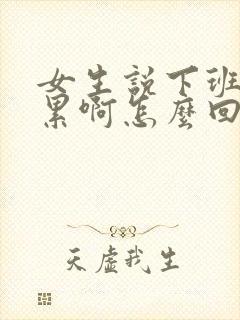 女生說下班
累啊怎麼回
天虛我生